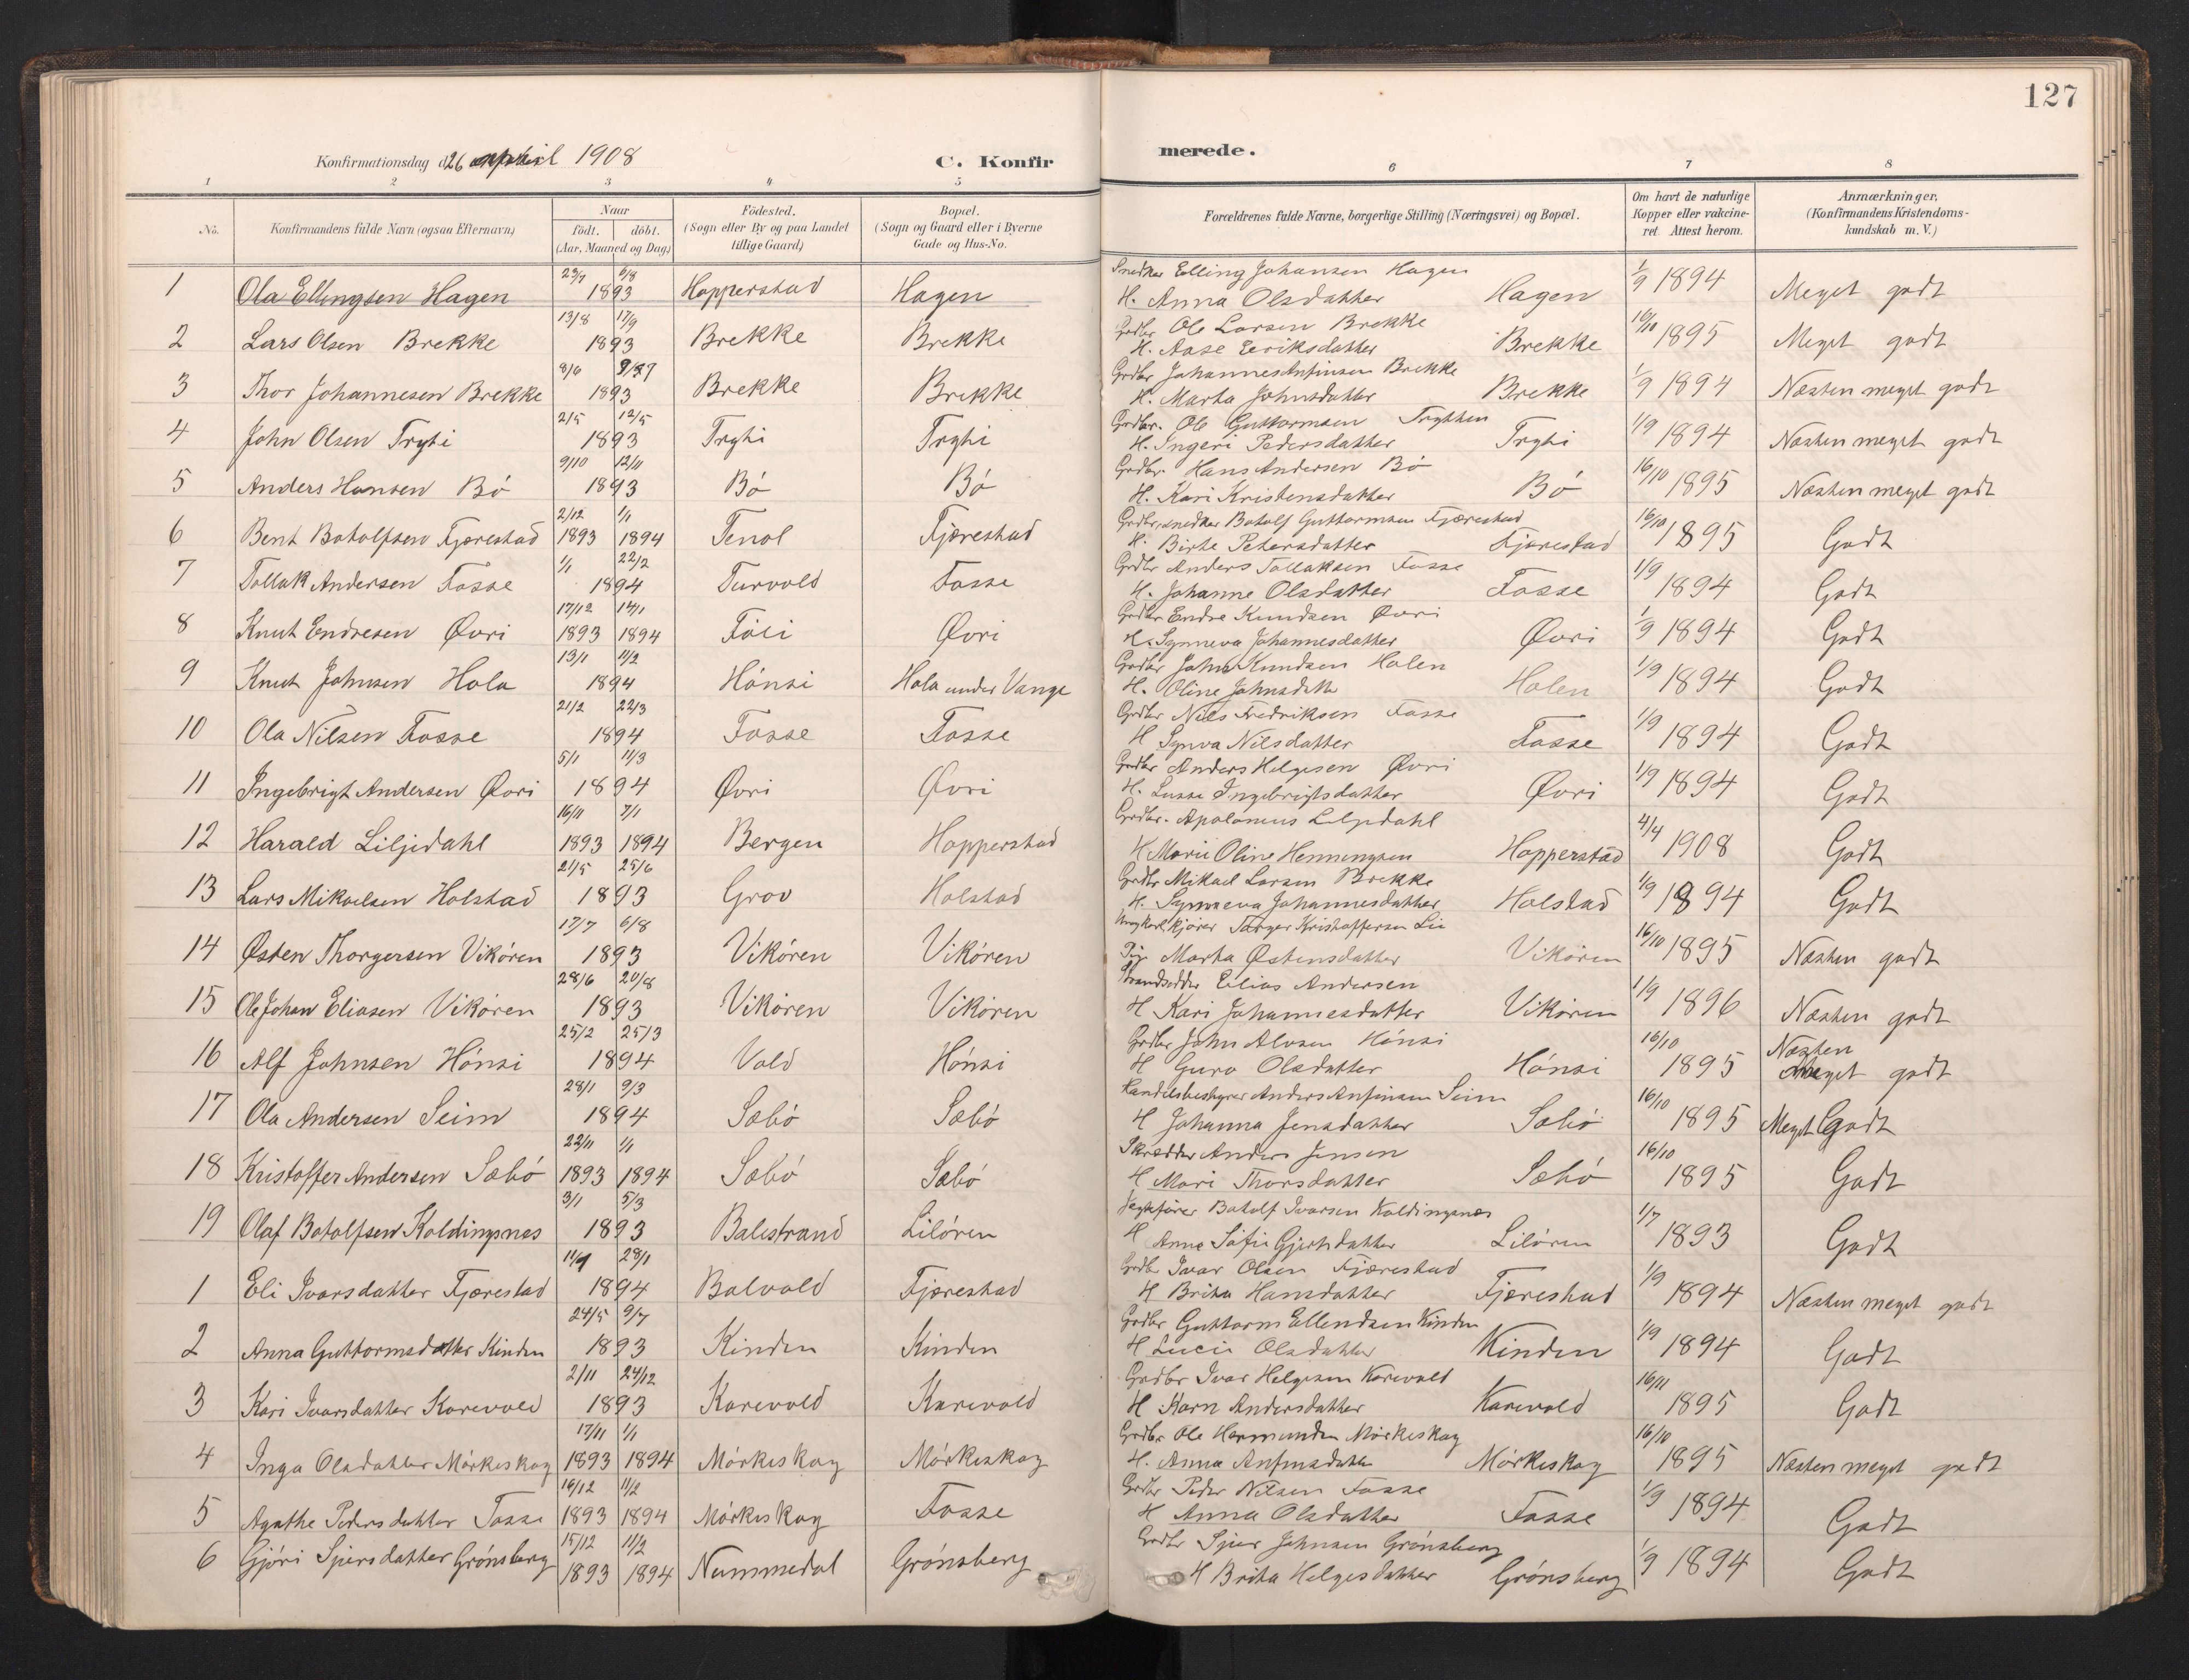 127
Konfirmationsdag d. 26 april 1908
C. Konfirmerede.
1 2 3 4 5 6 7 8
No.
Konfirmandens fulde Navn (ogsaa Efternavn)
Naar
födt. döbt.
(Aar, Maaned og Dag.)
Födested.
(Sogn eller By og paa Landet
tillige Gaard)
Bopæl.
(Sogn og Gaard eller i Byerne
Gade og Hus-No.
Forældrenes fulde Navne, borgerlige Stilling (Næringsvei) og Bopæl.
Om havt de naturlige
Kopper eller vakcine-
ret Attest herom.
Anmærkninger,
(Konfirmandens Kristendoms-
kundskab m. V.)
23/7 6/8 Snedker Elling Johansen Hagen
1 Ola Ellingsen Hagen 1893 Hopperstad Hagen H. Anna Olsdatter Hagen 1/9 1894 Meget godt
13/8 17/9 Grdbr Ole Larsen Brekke
2 Lars Olsen Brekke 1893 Brekke Brekke H. Aase Eeriksdatter Brekke 16/10 1895 Meget godt
8/6 Grdbr Johannes Anfinsen Brekke
3 Thor Johannesen Brekke 1893 Brekke Brekke H. Marta Johnsdatter Brekke 1/9 1894 Næsten meget godt
2/5 12/5 Grdbr. Ole Guttormsen Trythen
4 John Olsen Tryti 1893 Tryti Tryti H. Ingeri Pedersdatter Tryti 1/9 1894 Næsten meget godt
9/10 12/11 Grdbr. Hans Andersen Bö
5 Anders Hansen Bö 1893 Bö Bö H. Kari Kristensdatter Bö 16/10 1895 Næsten meget godt
2/12 1/1 Grdbr, snedker Botolf Guttormsen Fjærestad
6 Bent Botolfsen Fjærestad 1893 1894 Tenol Fjærestad H. Birte Petersdatter Fjærestad 16/10 1895 Godt
1/1 22/2 Grdbr Anders Tollaksen Fosse
7 Tollak Andersen Fosse 1894 Turvold Fosse H. Johanne Olsdatter Fosse 1/9 1894 Godt
17/12 14/1 Grdbr Endre Knudsen Øvri
8 Knut Endresen Øvri 1893 1894 Föli Øvri H. Synneva Johannesdatter Øvri 1/9 1894 Godt
13/1 11/2 Grdbr John Knudsen Holen
9 Knut Johnsen Hola 1894 Hönsi Hola under Vange H. Oline Johnsdatter Holen 1/9 1894 Godt
21/2 22/3 Grdbr Nils Fredriksen Fosse
10 Ola Nilsen Fosse 1894 Fosse Fosse H Synva Nilsdatter Fosse 1/9 1894 Godt
5/1 11/3 Grdbr Anders Helgesen Øvri
11 Ingebrigt Andersen Øvri 1894 Øvri Øvri H. Lusse Ingebrigtsdatter Øvri 1/9 1894 Godt
16/11 7/1 Grdbr. Apolonius Liljedahl
12 Harald Liljedahl 1893 1894 Bergen Hopperstad H Marie Oline Henningsen Hopperstad 4/4 1908 Godt
21/5 25/6 Grdbr Mikael Larsen Brekke
13 Lars Mikaelsen Holstad 1893 Grov Holstad H. Synneva Johannesdatter Holstad 1/9 1894 Godt
17/7 6/8 Torger Kristoffersen Lie
14 Østen Thorgersen Vikören 1893 Vikören Vikören Marta Østensdatter Vikören 16/10 1895 Næsten godt
28/6 20/8 Strandsidder Elias Andersen
15 Ole Johan Eliasen Vikören 1893 Vikören Vikören H Kari Johannesdatter Vikören 1/9 1896 Næsten godt
25/2 25/3 Grdbr John Alvsen Hönsi
16 Alf Johnsen Hönsi 1894 Vold Hönsi H Guro Olsdatter Hönsi 16/10 1895 Næsten meget godt
28/1 9/3 Handelsbestyrer Anders Anfinsen Seim
17 Ola Andersen Seim 1894 Sæbö Sæbö H Johanna Jensdatter Sæbö 16/10 1895 Meget Godt
22/11 1/1 Skrædder Anders Jensen
18 Kristoffer Andersen Sæbö 1893 1894 Sæbö Sæbö H Mari Thorsdatter Sæbö 16/10 1895 Godt
3/1 5/3 Botolf Ivarsen Koldingsnes
19 Olaf Botolfsen Koldingsnes 1893 Balestrand Lilören H Anne Sofie Gjertsdatter Lilören 1/7 1893 Godt
28/1 Grdbr Ivar Olsen Fjærestad
1 Eli Ivarsdatter Fjærestad 1894 Bolvold Fjærestad H Brita Hansdatter Fjærestad 1/9 1894 Næsten meget godt
24/5 9/7 Grdbr Guttorm Ellendsen Kinden
2 Anna Guttormsdatter Kinden 1893 Kinden Kinden H Lucie Olsdatter Kinden 1/9 1894 Godt
2/11 24/12 Grdbr Ivar Helgesen Karevold
3 Kari Ivarsdatter Karevold 1893 Karevold Karevold H Karn Andersdatter Karevold 16/11 1895 Godt
17/11 1/1 Grdbr Ole Hermundsen Mörkeskog
4 Inga Olsdatter Mörkeskog 1893 1894 Mörkeskog Mörkeskog H. Anna Anfinsdatter Mörkeskog 16/10 1895 Næsten meget godt
16/12 11/2 Grdbr Peder Nilsen Fosse
5 Agathe Pedersdatter Fosse 1893 1894 Mörkeskog Fosse H Anna Olsdatter Fosse 1/9 1894 Godt
15/12 11/2 Grdbr Sjur Johnsen Grönsberg
6 Gjöri Sjursdatter Grönsberg 1893 1894 Nummedal Grönsberg H Brita Helgesdatter Grönsberg 1/9 1894 Godt